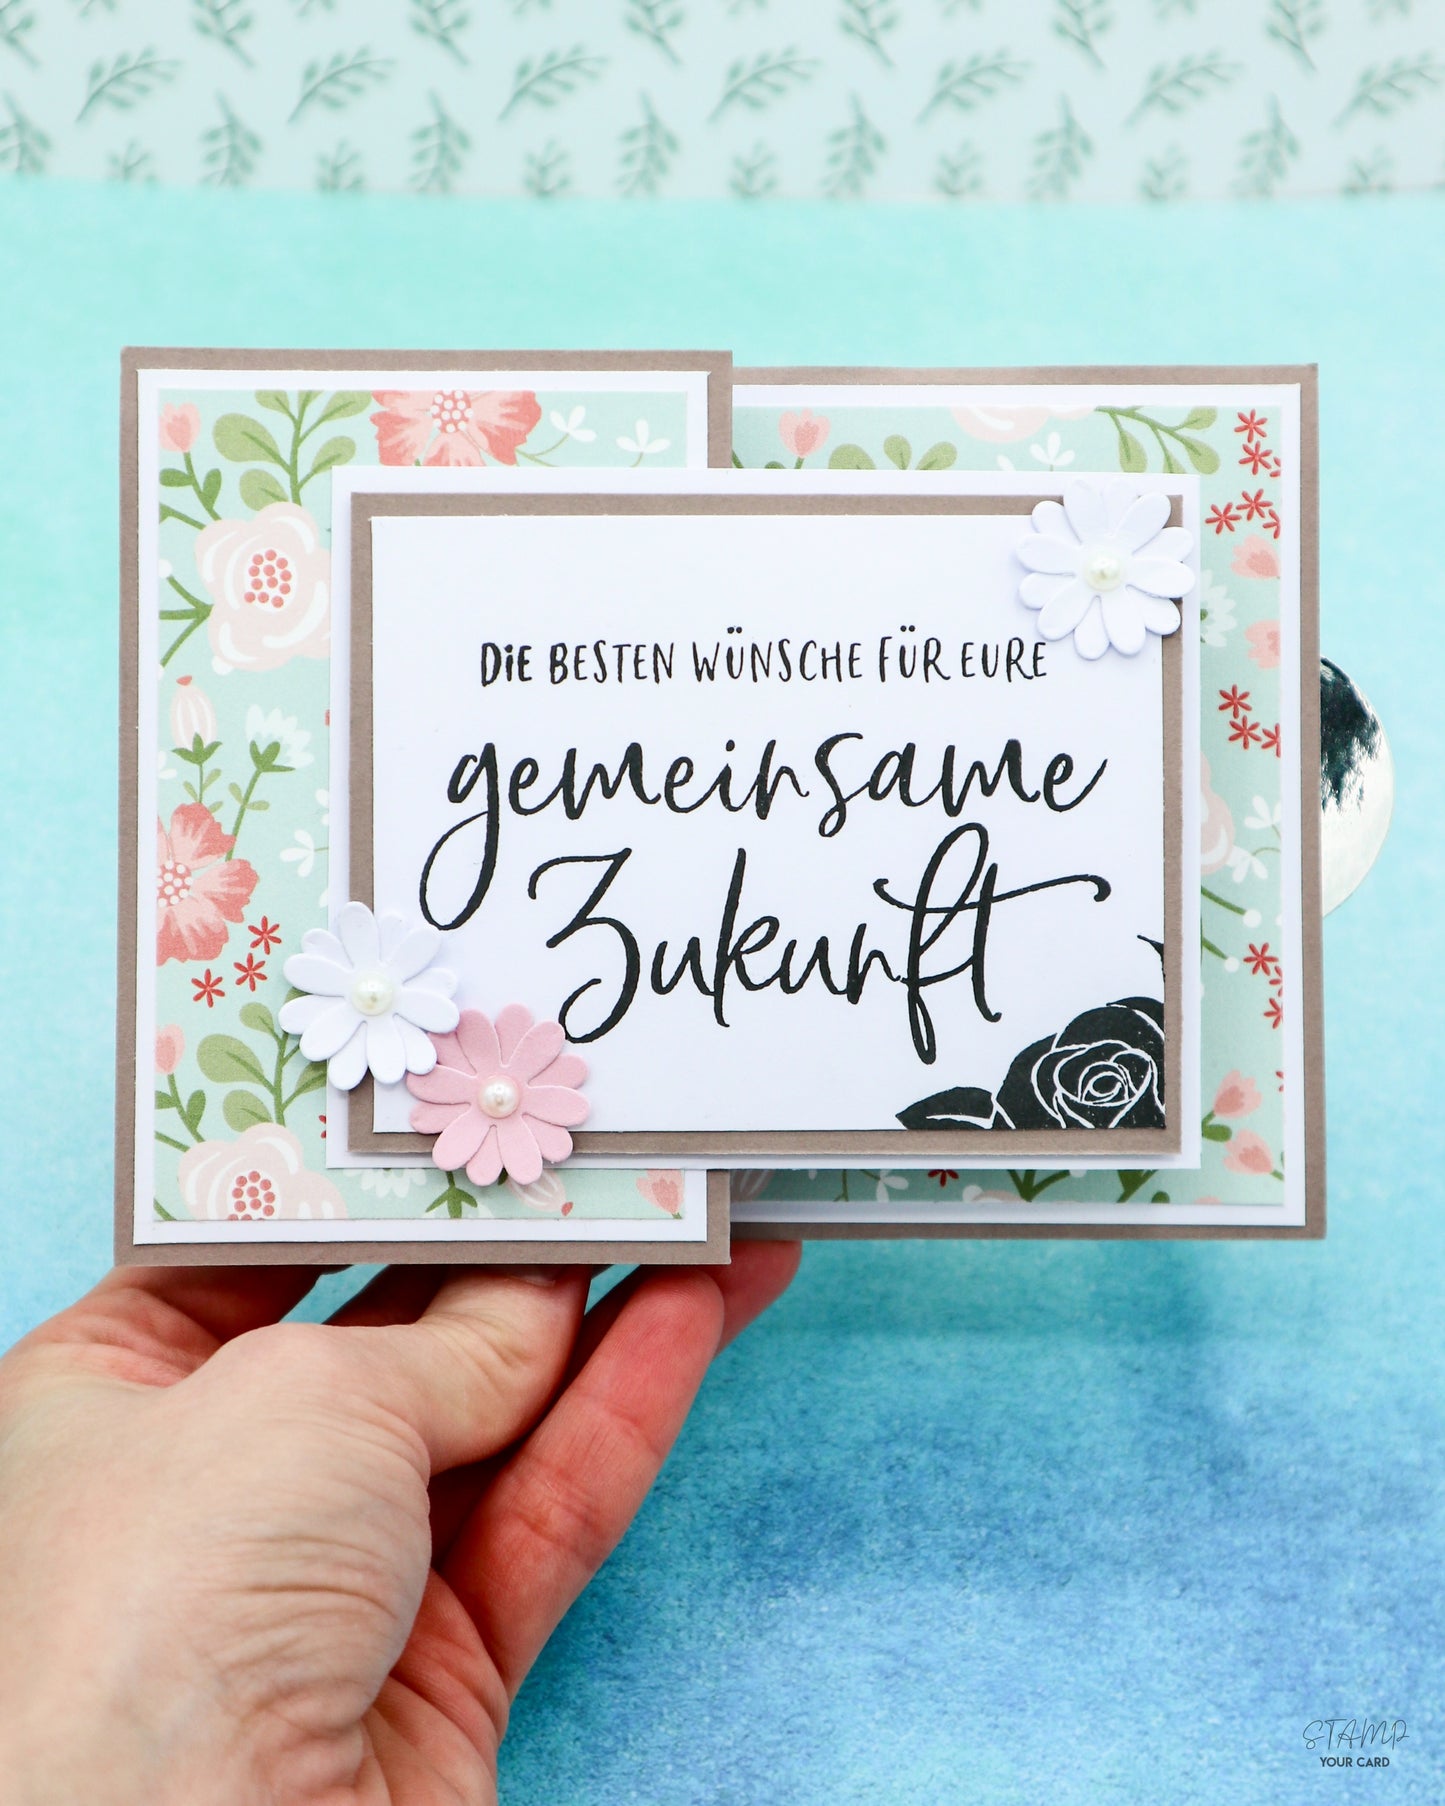 DiE BESTEN WÜNSCHE FÜR EURE
gemeinsame
Zukunft
STAMP
YOUR CARD